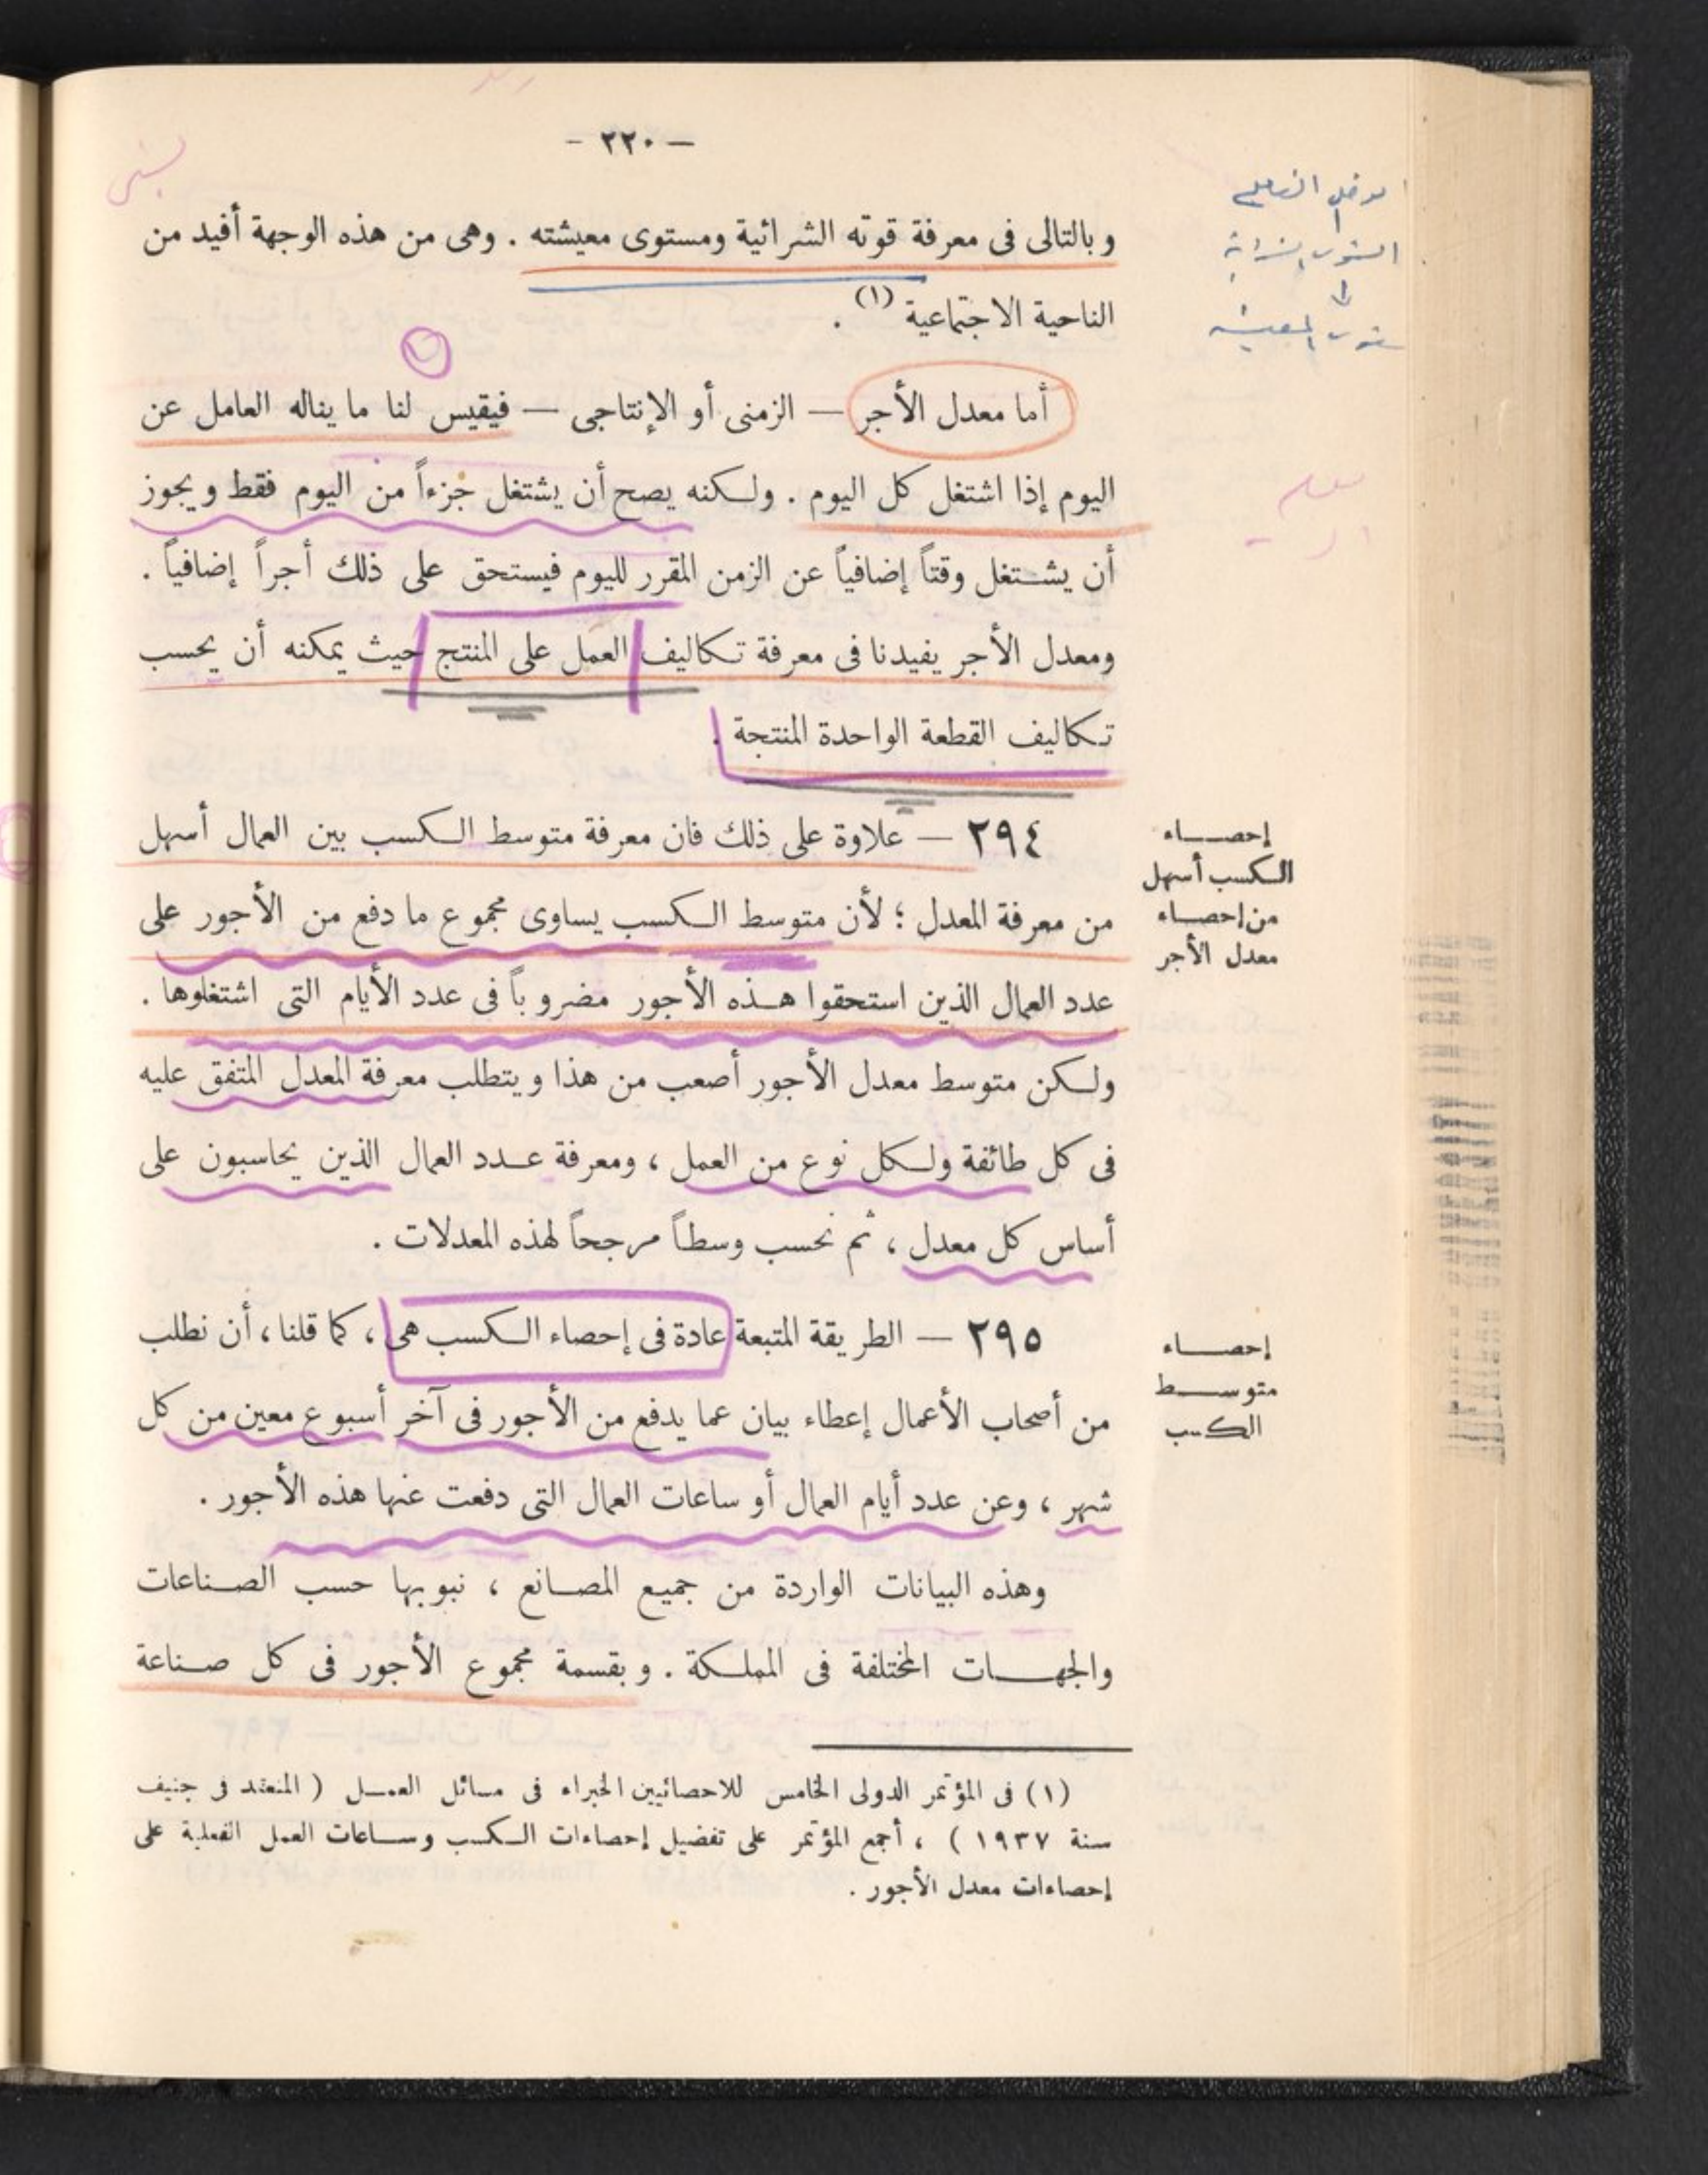 — ٢٢٠ —
وبالتالى فى معرفة قوته الشرائية ومستوى معيشته . وهى من هذه الوجهة أفيد من
الناحية الاجتماعية (١) .
أما معدل الأجر — الزمنى أو الإنتاجى — فيقيس لنا ما يناله العامل عن
اليوم إذا اشتغل كل اليوم . ولكنه يصح أن يشتغل جزءاً من اليوم فقط ويجوز
أن يشتغل وقتاً إضافياً عن الزمن المقرر لليوم فيستحق على ذلك أجراً إضافياً .
ومعدل الأجر يفيدنا فى معرفة تكاليف العمل على المنتج حيث يمكنه أن يحسب
تكاليف القطعة الواحدة المنتجة .
إحصاء
الكسب أسهل
من إحصاء
معدل الأجر
٢٩٤ — علاوة على ذلك فان معرفة متوسط الكسب بين العمال أسهل
من معرفة المعدل ؛ لأن متوسط الكسب يساوى مجموع ما دفع من الأجور على
عدد العمال الذين استحقوا هذه الأجور مضروباً فى عدد الأيام التى اشتغلوها .
ولكن متوسط معدل الأجور أصعب من هذا ويتطلب معرفة المعدل المتفق عليه
فى كل طائفة ولكل نوع من العمل ، ومعرفة عدد العمال الذين يحاسبون على
أساس كل معدل ، ثم نحسب وسطاً مرجحاً لهذه المعدلات .
إحصاء
متوسط
الكسب
٢٩٥ — الطريقة المتبعة عادة فى إحصاء الكسب هى ، كما قلنا ، أن نطلب
من أصحاب الأعمال إعطاء بيان عما يدفع من الأجور فى آخر أسبوع معين من كل
شهر ، وعن عدد أيام العمال أو ساعات العمال التى دفعت عنها هذه الأجور .
وهذه البيانات الواردة من جميع المصانع ، نبوبها حسب الصناعات
والجهات المختلفة فى المملكة . وبقسمة مجموع الأجور فى كل صناعة
(١) فى المؤتمر الدولى الخامس للاحصائيين الخبراء فى مسائل العمل ( المنعقد فى جنيف
سنة ١٩٣٧ ) ، أجمع المؤتمر على تفضيل إحصاءات الكسب وساعات العمل الفعلية على
إحصاءات معدل الأجور .